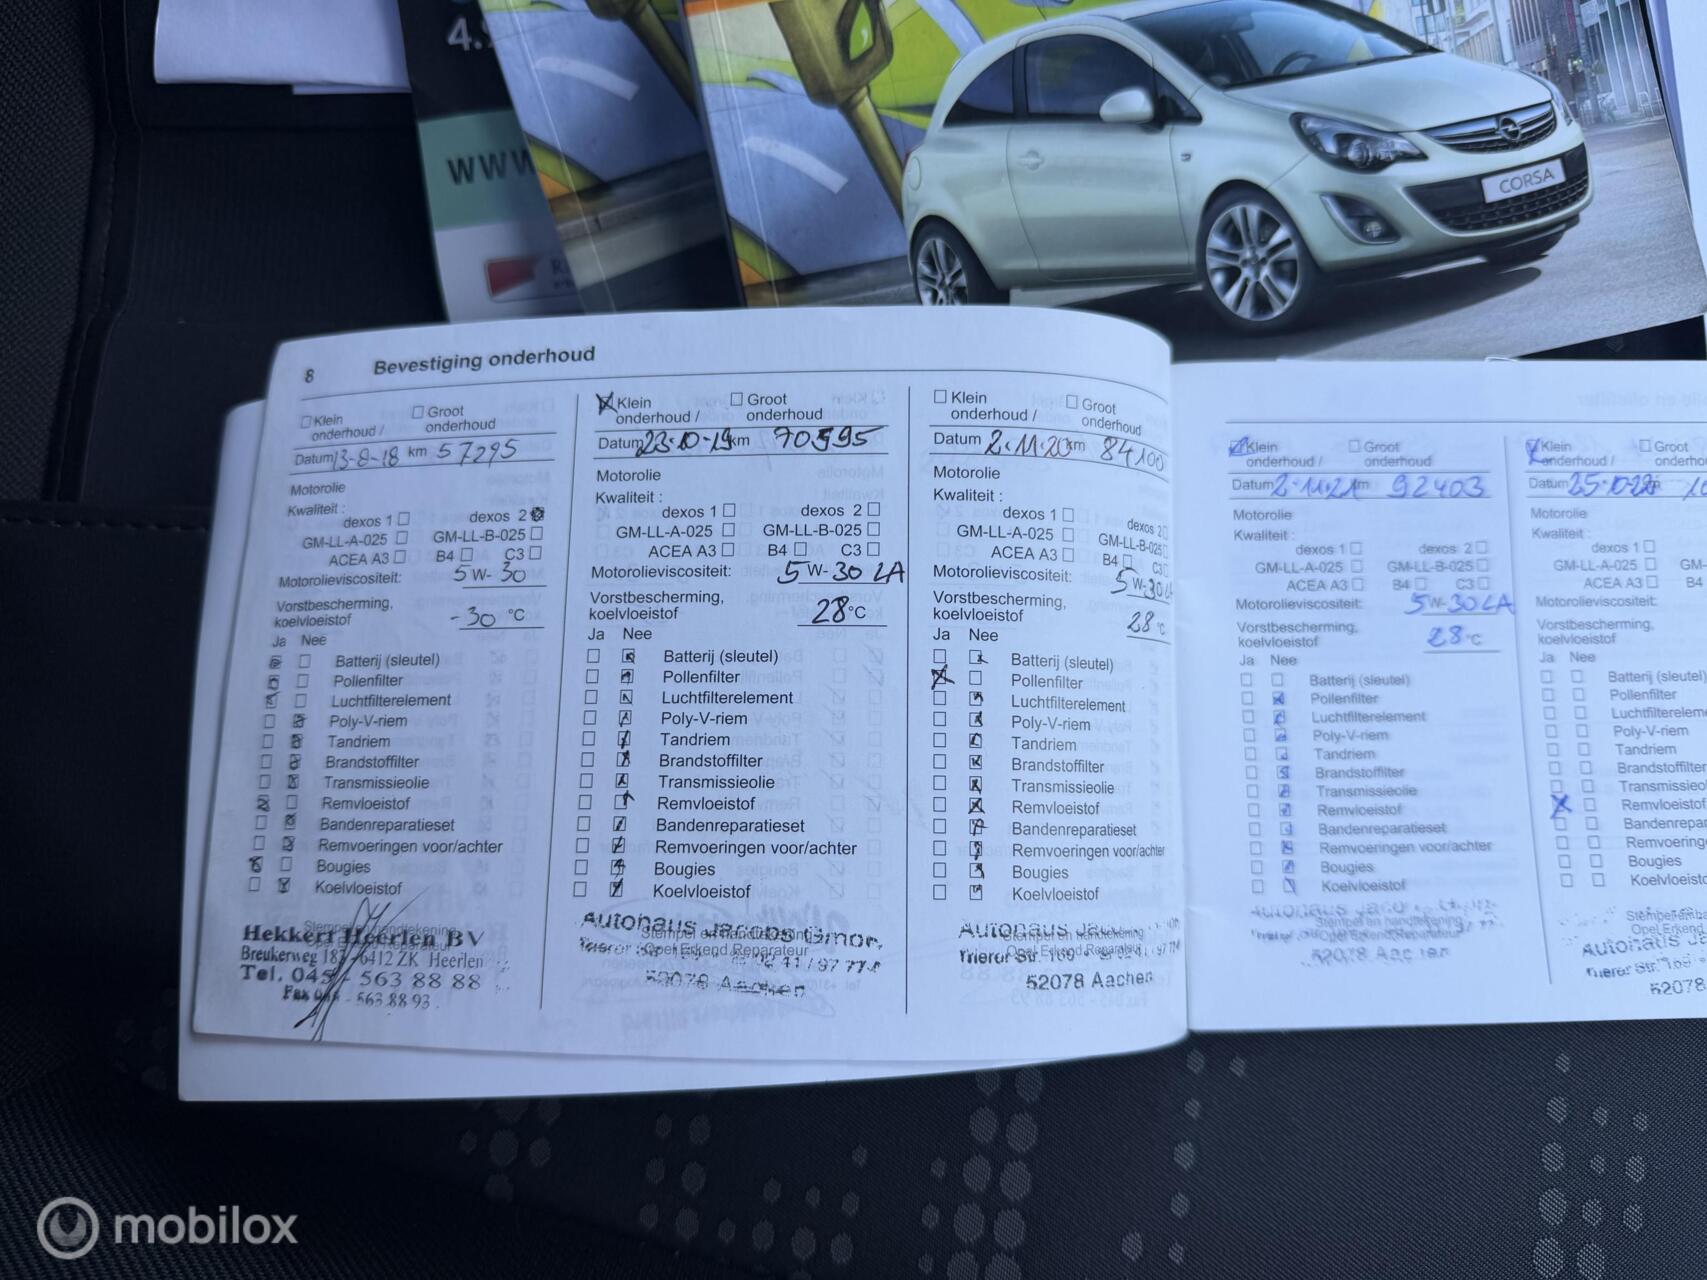 4.9
www
CORSA
8 Bevestiging onderhoud
Klein onderhoud / Groot onderhoud
Datum 13-8-18 km 57295
Motorolie
Kwaliteit :
dexos 1 dexos 2
GM-LL-A-025 GM-LL-B-025
ACEA A3 B4 C3
Motorolieviscositeit: 5W-30
Vorstbescherming,
koelvloeistof -30 °C
Ja Nee
Batterij (sleutel)
Pollenfilter
Luchtfilterelement
Poly-V-riem
Tandriem
Brandstoffilter
Transmissieolie
Remvloeistof
Bandenreparatieset
Remvoeringen voor/achter
Bougies
Koelvloeistof
Stempel en handtekening
Hekkert Heerlen BV
Breukerweg 182 - 6412 ZK Heerlen
Tel. 045 - 563 88 88
Fax 045 - 563 88 93
Klein onderhoud / Groot onderhoud
Datum 23-10-19 km 70595
Motorolie
Kwaliteit :
dexos 1 dexos 2
GM-LL-A-025 GM-LL-B-025
ACEA A3 B4 C3
Motorolieviscositeit: 5W-30 LA
Vorstbescherming,
koelvloeistof 28 °C
Ja Nee
Batterij (sleutel)
Pollenfilter
Luchtfilterelement
Poly-V-riem
Tandriem
Brandstoffilter
Transmissieolie
Remvloeistof
Bandenreparatieset
Remvoeringen voor/achter
Bougies
Koelvloeistof
Autohaus Jacobs GmbH
Stempel en handtekening
Opel Erkend Reparateur
52078 Aachen
Klein onderhoud / Groot onderhoud
Datum 2.11.20 km 84100
Motorolie
Kwaliteit :
dexos 1 dexos 2
GM-LL-A-025 GM-LL-B-025
ACEA A3 B4 C3
Motorolieviscositeit: 5W-30 LA
Vorstbescherming,
koelvloeistof 28 °C
Ja Nee
Batterij (sleutel)
Pollenfilter
Luchtfilterelement
Poly-V-riem
Tandriem
Brandstoffilter
Transmissieolie
Remvloeistof
Bandenreparatieset
Remvoeringen voor/achter
Bougies
Koelvloeistof
Autohaus
Stempel en handtekening
Opel Erkend Reparateur
Trierer Str. 169
52078 Aachen
Klein onderhoud / Groot onderhoud
Datum 2.11.21 km 92403
Motorolie
Kwaliteit :
dexos 1 dexos 2
GM-LL-A-025 GM-LL-B-025
ACEA A3 B4 C3
Motorolieviscositeit: 5W-30 LA
Vorstbescherming,
koelvloeistof 28 °C
Ja Nee
Batterij (sleutel)
Pollenfilter
Luchtfilterelement
Poly-V-riem
Tandriem
Brandstoffilter
Transmissieolie
Remvloeistof
Bandenreparatieset
Remvoeringen voor/achter
Bougies
Koelvloeistof
Stempel en handtekening
Opel Erkend Reparateur
52078 Aachen
Klein onderhoud / Groot onderho
Datum
Motorolie
Kwaliteit :
dexos 1
GM-LL-A-025 GM-
ACEA A3 B4
Motorolieviscositeit:
Vorstbescherming,
koelvloeistof
Ja Nee
Batterij (sleutel)
Pollenfilter
Luchtfiltereleme
Poly-V-riem
Tandriem
Brandstoffilter
Transmissieo
Remvloeistof
Bandenrepar
Remvoering
Bougies
Koelvloeisto
Autohaus
Trierer Str. 169
52078
mobilox